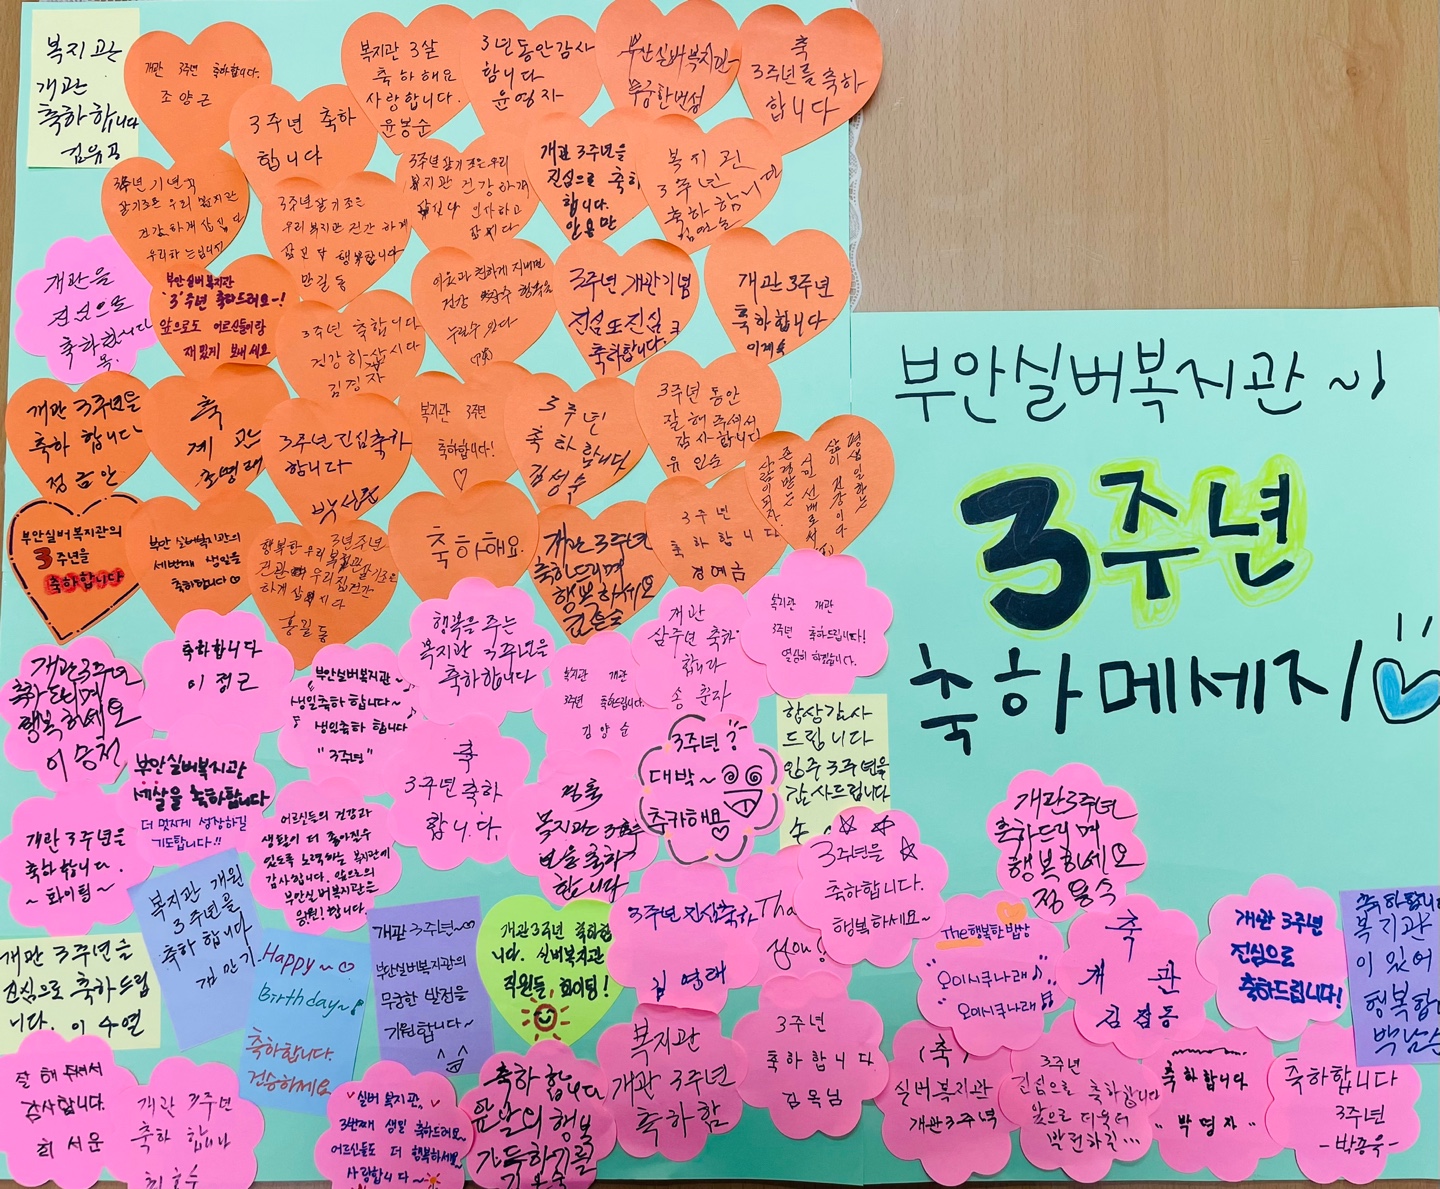 복지관
개관
축하합니다
개관 3주년 축하합니다.
조양근
3주년 축하
합니다
복지관 3살
축하해요
사랑합니다.
윤봉순
3년동안감사
합니다
윤영자
부산실버복지관
무궁한번성
축
3주년를 축하
합니다
3주년 기년식
살기조은 우리 복지관
건강하게 삽십다
3주년살기조은
우리복지관 건강하게
행복합니다
만길동
3주년살기조은우리
복지관 건강하게
인사하고
개관 3주년을
진심으로 축하
합니다.
안용만
복지관
3주년
축하합니다
개관을
진심으로
축하합니다
부안실버복지관
'3'주년 축하드려요~!
앞으로도 어르신들이랑
재밌게 보내세요
3주년 축합니다
건강하십시다
김정자
이웃과 친하게 지내면
건강 장수 행복을
누릴수 있다
3주년 개관기념
진심또진심
축하합니다.
개관3주년
축하합니다
개관 3주년을
축하 합니다
정금안
축
개관
조병래
3주년진심축하
합니다
복지관 3주년
축하합니다!
3주년
축하합니다
김성수
3주년 동안
잘해주셔서
감사합니다
유인순
평생일하는
삶이 건강이다
존경받는
시니 선배로서
사람이되자
부안실버복지관의
3주년을
축하합니다
부안 실버복지관의
세번째 생일을
축하합니다
행복한우리복지관 3년주년
하게 삽시다
홍길동
축하해요.
개관3주년
축하드리며
행복하세요
3주년
축하합니다
정예금
개관3주년
축하드리며
행복하세요
이승전
축하합니다
이정근
부안실버복지관~
생일축하 합니다~
생일축하 합니다
"3주년"
행복을 주는
복지관 3주년을
축하합니다
복지관 개관
3주년 축하드립니다.
김양순
개관
삼주년 축하
합니다
송훈자
복지관 개관
3주년 축하드립니다!
열심히 하겠습니다.
부안실버복지관
세살을 축하합니다
더 멋지게 성장하길
기도합니다!!
개관 3주년을
축하합니다.
화이팅~
어르신들의 건강과
생활이 더 좋아질수
있도록 노력하는 복지관에
감사합니다. 앞으로의
부안실버복지관을
응원! 합니다.
축
3주년축하
합니다.
경축
복지관 3주
년을 축하
합니다
3주년?
대박~
추카해요
항상감사
드립니다
입주3주년을
감사드립니다
3주년을
축하합니다.
행복하세요~
개관3주년
축하드리며
행복하세요
정용수
개관 3주년을
진심으로 축하드립
니다. 이수연
복지관 개원
3주년을
축하 합니다
김만기
Happy~
Birthday~
축하합니다.
건승하세요
개관 3주년~
부안실버복지관의
무궁한 발전을
기원합니다~
개관3주년 축하합
니다. 실버복지관
직원들, 화이팅!
3주년 진심축하
김영래
Tha
you!
The행복한밥상
오이시쿠나래
오이시쿠나래
축
개관
김점동
개관 3주년
진심으로
축하드립니다!
축하합니다
복지관
이 있어
행복합
잘해주셔서
감사합니다.
최서운
개관 3주년
축하합니다
최호수
실버복지관,
3번째 생일 축하드려요
어르신들도 더 행복하세요
사랑합니다~
축하합니다
윤날의행복
가득하기를
복지관
개관 3주년
축하함
3주년
축하합니다
김옥님
(축)
실버복지관
개관3주년
3주년
진심으로 축하합니다
앞으로 더욱더
발전하길...
축하합니다
박영자
축하합니다
3주년
-박종욱-
부안실버복지관~!
3주년
축하메세지!